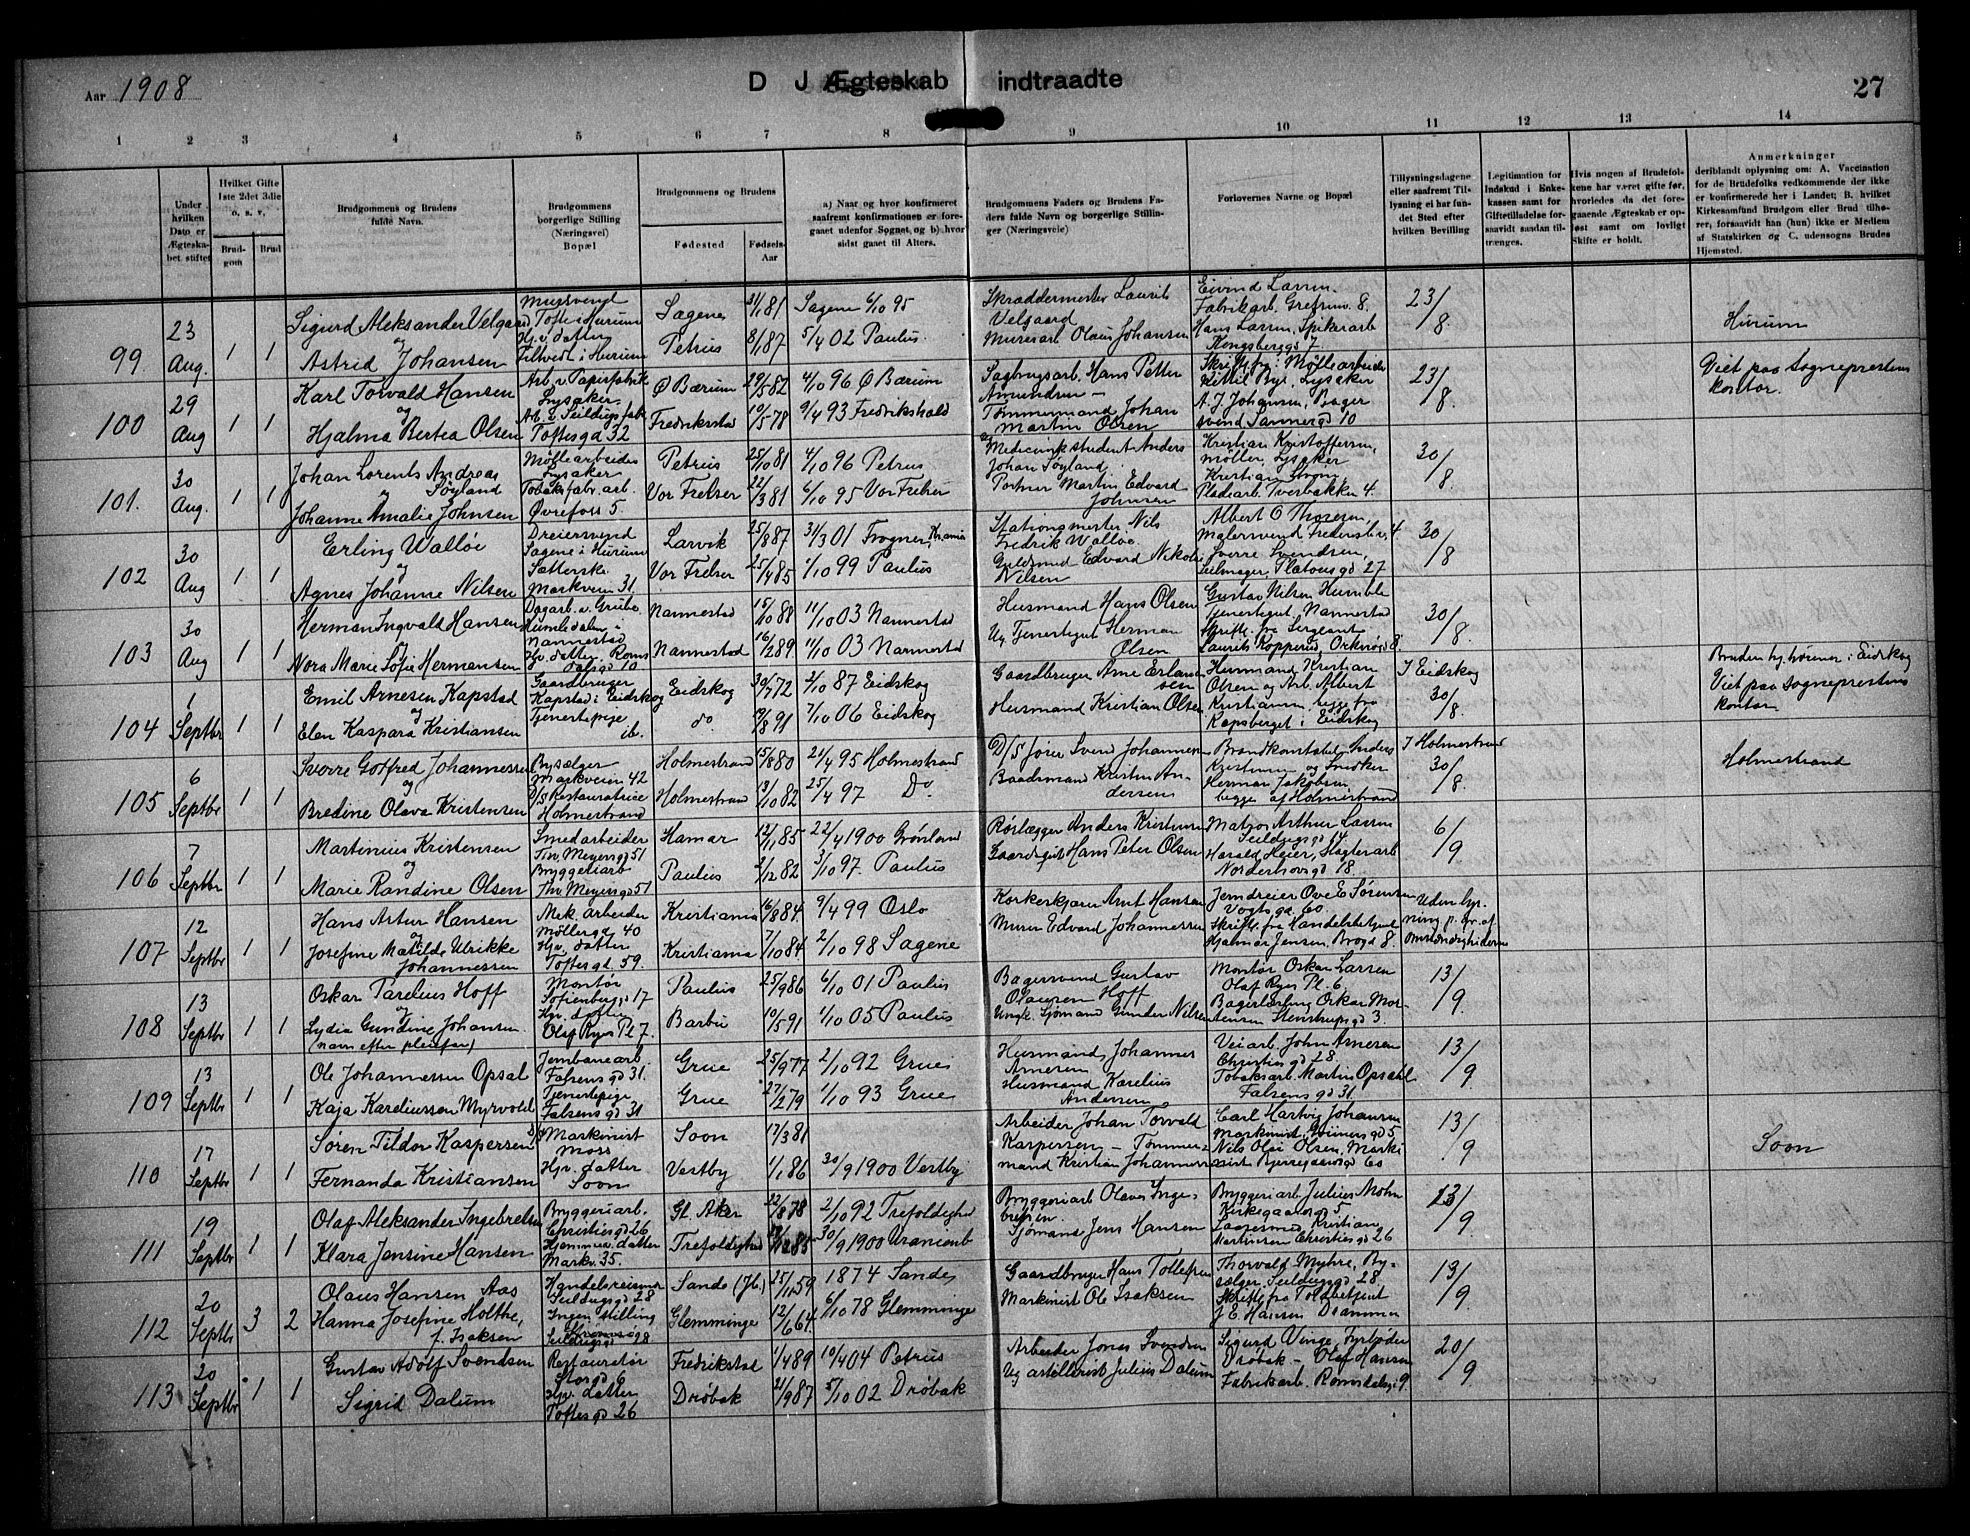 Aar 1908
D I Ægteskab indtraadte
27
1 2 3 4 5 6 7 8 9 10 11 12 13 14
Under hvilken Dato er Ægteskabet stiftet
Hvilket Gifte 1ste 2det 3die o. s. v,
Brudgom
Brud
Brudgommens og Brudens fulde Navn.
Brudgommens borgerlige Stilling (Næringsvei) Bopæl
Brudgommens og Brudens
Fødested
Fødsels-Aar
a) Naar og hvor konfirmeret saafremt konfirmationen er foregaaet udenfor Sognet, og b) hvor sidst gaaet til Alters.
Brudgommens Faders og Brudens Faders fulde Navn og borgerlige Stillinger (Næringsveie)
Forlovernes Navne og Bopæl
Tillysningsdagene eller saafremt Tillysning ei har fundet Sted efter hvilken Bevilling
Legitimation for Indskud i Enkekassen samt for Giftetilladelse forsaavidt saadan tiltrænges.
Hvis nogen af Brudefolkene har været gifte før, hvorledes da det foregaaende Ægteskab er opløst samt om lovligt Skifte er holdt.
Anmerkninger
deriblandt oplysning om: A. Vaccination for de Brudefolks vedkommende der ikke er konfirmerede her i Landet; B. hvilket Kirkesamfund Brudgom eller Brud tilhører, forsaavidt han (hun) ikke er Medlem af Statskirken og C. udensogns Brudes Hjemsted.
99. 23 Aug. 1 1
Sigurd Aleksander Velgaard og Astrid Johansen
Mursvend Tofte i Hurum
Hj.v. datter Filtvedt i Hurum
Sagene 31/1 81 Sagene 6/10 95
Petrus 8/1 87 5/4 02 Paulus.
Skræddermester Laurits Velgaard
Murerarb Olaus Johansen
Eivind Larsen Fabrikarb. Grefsenv. 8.
Hans Larsen, Spikerarb Kongsbergd 7
23/8.
Hurum
100 29 Aug 1 1
Karl Torvald Hansen og Hjalma Bertea Olsen
Arb. v Papirfabrik Lysaker
Arb. v Seildugsfabr Toftesgd 32
Ø Bærum 29/5 82 4/10 96 Ø Bærum
Fredriksstad 10/5 78 9/4 93 Fredrikshald
Sagbrugsarb. Hans Petter Amundsen –
Tømmermand Johan Martin Olsen
Skriftl. fr: Møllearbeider Kittil Bye, Lysaker
A. J Johansen, Bagersvend Sannergd 10
23/8.
Viet paa Sogneprestens kontor.
101. 30 Aug. 1 1
Johan Lorents Andreas Søyland og Johanne Amalie Johnsen
Møllearbeider Lysaker
Tobaksfabr. arb. Øvrefoss 5
Petrus 25/10 81 4/10 96 Petrus
Vor Frelser 22/3 81 6/10 95 Vor Frelser
Medicinskstudent Anders Johan Søyland.
Portner Martin Edvard Johnsen
Kristian Kristoffersen, møller, Lysaker
Kristian Strøm, Pladearb. Tverbakken 4.
30/8.
102 30 Aug 1 1
Erling Walløe og Agnes Johanne Nilsen
Dreiersvend Sagene i Hurum
Sætterske Markveien 31
Larvik 25/8 87 31/3 01 Frogner, Krania
Vor Frelser 25/4 85 1/10 99 Paulus
Stationsmester Nils Fredrik Walløe.
Guldsmed Edvard Nikolai Nilsen
Albert O Thoresen, Malersvend,
Sverre Svendsen, Seilmager, Platousgd 27
30/8
103 30 Aug 1 1
Herman Ingvald Hansen og Nora Marie Sofie Hermansen
Dagarb. v. Grube Humledalen i Nannestad
Hjv. datter Romsdalsgd 10
Nannestad 15/10 88 11/10 03 Nannestad
Nannestad 16/2 89 11/10 03 Nannestad
Husmand Hans Olsen
Ug Tjenestegut Herman Olsen
Gustav Nilsen Humble Tjenestegut, Nannestad
Skriftl. fra Sergeant Laurits Kopperud, Orknøgd 8.
30/8.
104 1 Septbr 1 1
Emil Arnesen Kapstad og Elen Kaspara Kristiansen
Gaardbruger Kapstad i Eidskog
Tjenestepige ib.
Eidskog 30/7 72 2/10 87 Eidskog
do 19/8 91 7/10 06 Eidskog
Gaardbruger Arne Erlandsen
Husmand Kristian Olsen
Husmand Kristian Olsen og Arb. Albert Kristiansen, begge fra Kapsberget i Eidskog
I Eidskog 30/8.
Bruden hj. hørende i Eidskog
Viet paa Sogneprestens kontor
105 6 Septbr 1 1
Sverre Gotfred Johannessen og Bredine Olava Kristensen
Bysælger Markveien 42
D/S Restauratrice Holmestrand
Holmestrand 15/8 80 21/4 95 Holmestrand
Holmestrand 13/10 82 25/4 97 Do.
D/S fører Svend Johannesen
Baadsmand Kristen Andersen
Brandkonstabel Anders Kristensen og Snedker Herman Jakobsen, begge af Holmestrand
I Holmestrand 30/8.
Holmestrand
106 7 Septbr 1 1
Martinius Kristensen og Marie Randine Olsen
Smedarbeider Thv. Meyersgd 51
Bryggeriarb Thv. Meyersgd 51
Hamar 12/1 85 22/4 1900 Grønland
Paulus 2/12 82 3/10 97. Paulus
Rørlægger Anders Kristensen
Gaardsgut Hans Peter Olsen
Matros Arthur Larsen Seildugsgd 14
Harald Heier, Slagterarb Norderhovsgd 18.
6/9
107 12 Septbr 1 1
Hans Artur Hansen og Josefine Matilde Ulrikke Johannessen
Mek. arbeider Møllergd 40
Hjv. datter Toftesgd. 59.
Kristiania 16/8 84 9/4 99 Oslo
Kristiania 7/10 84 2/10 98 Sagene
Korkeskjærer Arnt Hansen
Murer Edvard Johannessen
Jerndreier Ove E Sørensen Vogtsgd. 60
Skriftl. fra Handelsbetjent Hjalmar Jensen, Brogd 8.
Uden lysning p. gr. af omstændighederne
108 13 Septbr 1 1
Oskar Parelius Hoff og Lydia Gundine Johansen (navn efter pleiefar)
Montør Sofienbergg. 17
Hjv. datter Olaf Ryes Pl 7.
Paulus 25/9 86 6/10 01 Paulus
Barbu 10/5 91 1/10 05 Paulus
Bagersvend Gustav Olausen Hoff
Ungk. Sjømand Gunder Nilsen
Montør Oskar Larsen Olaf Ryes Pl. 6
Bagerlærling Oskar Mortensen Steenstrupsgd 3.
13/9.
109 13 Septbr 1 1
Ole Johannessen Opsal og Kaja Kareliussen Myrvold
Jernbanearb. Falsensgd 31.
Tjenestepige Falsensgd 31
Grue 25/9 77 2/10 92 Grue
Grue 27/2 79 1/10 93 Grue
Husmand Johannes Arnesen
Husmand Karelius Andersen
Veiarb. John Arnesen Christiesgd 28.
Tobaksarb. Martin Opsahl Falsensgd 31.
13/9.
110 17 Septbr 1 1
Søren Tildor Kaspersen Fernanda Kristiansen
D/S Maskinist Moss
Hjv. datter Soon
Soon 17/3 81
Vestby 1/1 86 30/9 1900 Vestby
Arbeider Johan Torvald Kaspersen – Tømmermand Kristian Johannessen
Carl Hartvig Johansen Maskinist, Grünersgd 5
Nils Olai Olsen, Maskinist Bjerregaardsgd 60
13/9
Soon
111 19 Septbr 1 1
Olaf Aleksander Ingebretsen Klara Jensine Hansen
Bryggeriarb. Christiesgd 26
Hjemmev. datter Markv. 35.
Gl. Aker 22/8 78 2/10 92 Trefoldighed
Trefoldighed 85 30/9 1900 Uranienb
Bryggeriarb Olaves Ingebretsen.
Sjømand Jens Hansen
Bryggeriarb. Julius Mohn Kirkegaardsgd 5
Kristian Martinsen Christiesgd 26
13/9
112 20 Septbr 3 2
Olaus Hansen Aas Hanna Josefine Holthe, f. Isaksen
Handelsreisende Seildugsgd 28
Ingen stilling Seildugsgd 28
Sande (Jb.) 25/1 59 1874 Sande
Glemminge 12/6 64. 6/10 78 Glemminge
Gaardbruger Hans Tollefsen
Maskinist Ole Isaksen
Thorvald Myhre, Bysælger, Seildugsgd 28.
Skriftl. fra Toldbetjent J. E. Hansen Drammen
13/9
113 20 Septbr 1 1
Gustav Adolf Svendsen Sigrid Dalum
Restauratør Storgd 9
Hjv. datter Toftesgd 26
Fredrikstad 1/4 89 10/4 04 Petrus
Drøbak 21/9 87 5/10 02 Drøbak
Arbeider Jonas Svendsen
Ug artillerist Julius Dalum
Sigurd Vinge, Fyrbøder Drøbak – Olaf Hansen Fabrikarb. Romsdalsg 9.
20/9